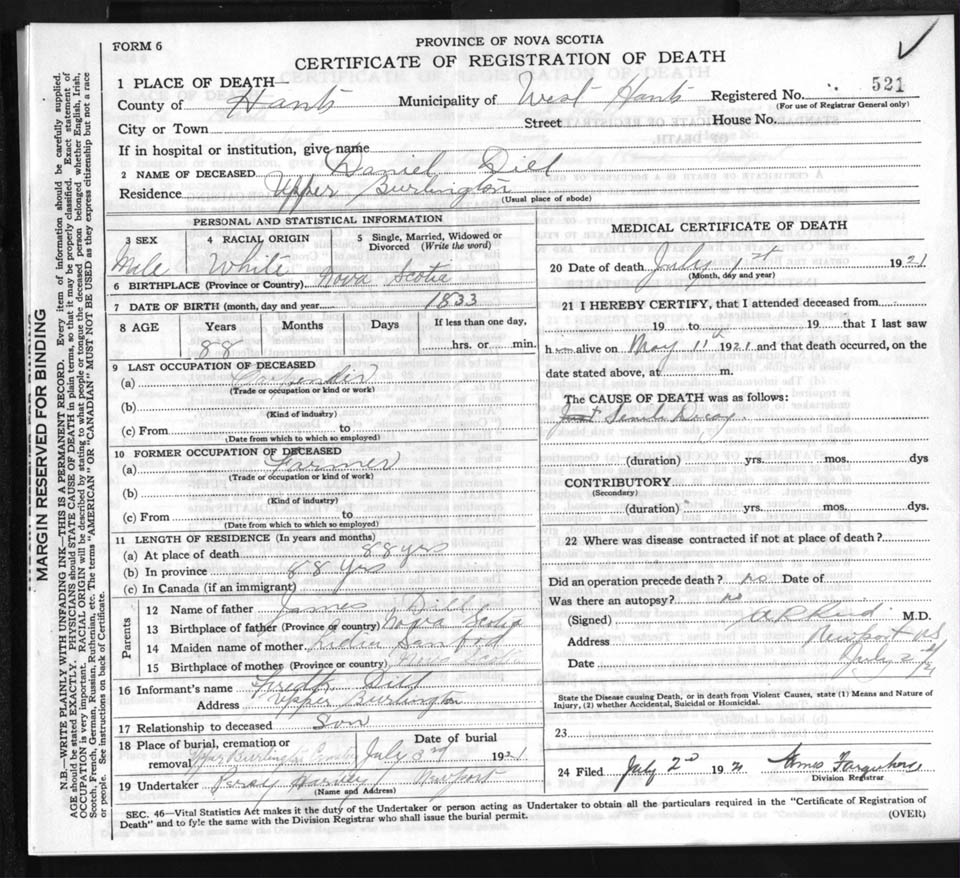 FORM 6
PROVINCE OF NOVA SCOTIA
CERTIFICATE OF REGISTRATION OF DEATH
1 PLACE OF DEATH
County of Hants Municipality of West Hants Registered No. 521
(For use of Registrar General only)
City or Town Street House No.
If in hospital or institution, give name
2 NAME OF DECEASED Daniel Dill
Residence Upper Burlington
(Usual place of abode)
PERSONAL AND STATISTICAL INFORMATION
3 SEX 4 RACIAL ORIGIN 5 Single, Married, Widowed or
Divorced (Write the word)
Male White
6 BIRTHPLACE (Province or Country) Nova Scotia
7 DATE OF BIRTH (month, day and year) 1833
8 AGE Years Months Days If less than one day,
88 hrs. or min.
9 LAST OCCUPATION OF DECEASED
(a) Carpenter
(Trade or occupation or kind or work)
(b)
(Kind of industry)
(c) From to
(Date from which to which so employed)
10 FORMER OCCUPATION OF DECEASED
(a) Farmer
(Trade or occupation or kind of work)
(b)
(Kind of industry)
(c) From to
(Date from which to which so employed)
11 LENGTH OF RESIDENCE (In years and months)
(a) At place of death 88 yrs
(b) In province 88 yrs
(c) In Canada (if an immigrant)
Parents
12 Name of father James Dill
13 Birthplace of father (Province or country) Nova Scotia
14 Maiden name of mother Sanford
15 Birthplace of mother (Province or country) Nova Scotia
16 Informant's name Fredk Dill
Address Upper Burlington
17 Relationship to deceased Son
18 Place of burial, cremation or removal Date of burial
Upper Burlington July 3rd 1921
19 Undertaker Percy Harvey Newport
(Name and Address)
MEDICAL CERTIFICATE OF DEATH
20 Date of death July 1st 1921
(Month, day and year)
21 I HEREBY CERTIFY, that I attended deceased from
19 to 19 that I last saw
h alive on May 11th 1921 and that death occurred, on the
date stated above, at m.
The CAUSE OF DEATH was as follows:
Senile Decay
(duration) yrs. mos. dys
CONTRIBUTORY
(Secondary)
(duration) yrs. mos. dys.
22 Where was disease contracted if not at place of death?
Did an operation precede death? no Date of
Was there an autopsy? no
(Signed) M.D.
Address Newport NS
Date July 2nd/21
State the Disease causing Death, or in death from Violent Causes, state (1) Means and Nature of
Injury, (2) whether Accidental, Suicidal or Homicidal.
23
24 Filed July 2d 1921 Amos
Division Registrar
SEC. 46—Vital Statistics Act makes it the duty of the Undertaker or person acting as Undertaker to obtain all the particulars required in the "Certificate of Registration of
Death" and to fyle the same with the Division Registrar who shall issue the burial permit.
(OVER)
MARGIN RESERVED FOR BINDING
N.B.—WRITE PLAINLY WITH UNFADING INK—THIS IS A PERMANENT RECORD. Every item of information should be carefully supplied.
AGE should be stated EXACTLY. PHYSICIANS should STATE CAUSE OF DEATH in plain terms, so that it may be properly classified. Exact statement of
OCCUPATION is very important. RACIAL ORIGIN will be described by stating to what people or tongue the deceased person belonged whether English, Irish,
Scotch, French, German, Russian, Ruthenian, etc. The terms "AMERICAN" OR "CANADIAN" MUST NOT BE USED as they express citizenship but not a race
or people. See instructions on back of Certificate.